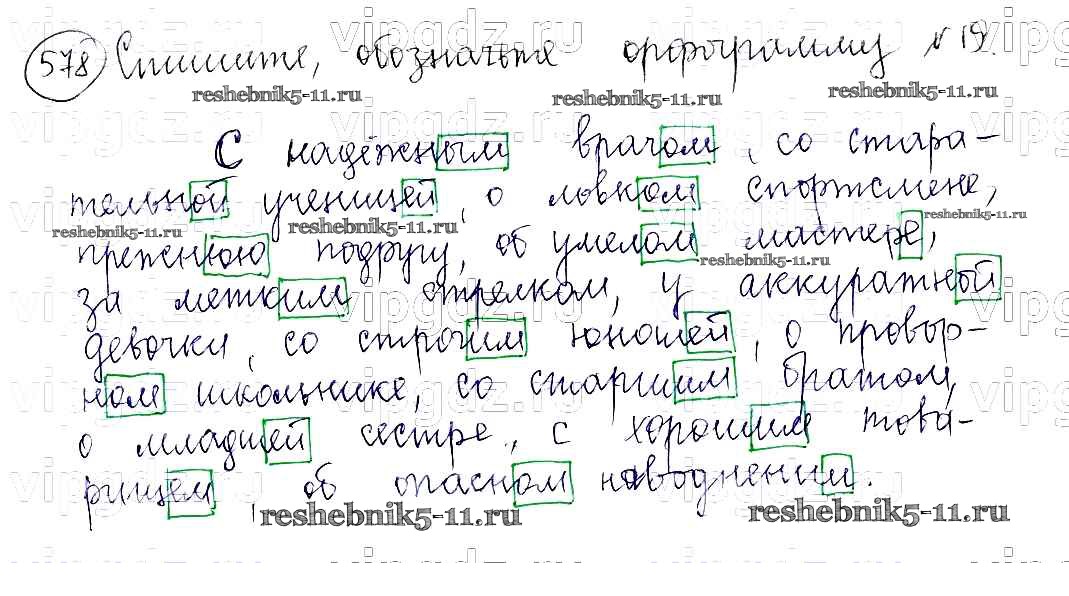 578 Спишите, обозначьте орфограмму №19.
С надёжным врачом, со стара-
тельной ученицей, о ловком спортсмене,
прежнюю подругу, об умелом мастере,
за метким стрелком, у аккуратной
девочки, со строгим юношей, о провор-
ном школьнике, со старшим братом,
о младшей сестре, с хорошим това-
рищем об опасном наводнении.
vipgdz.ru
reshebnik5-11.ru